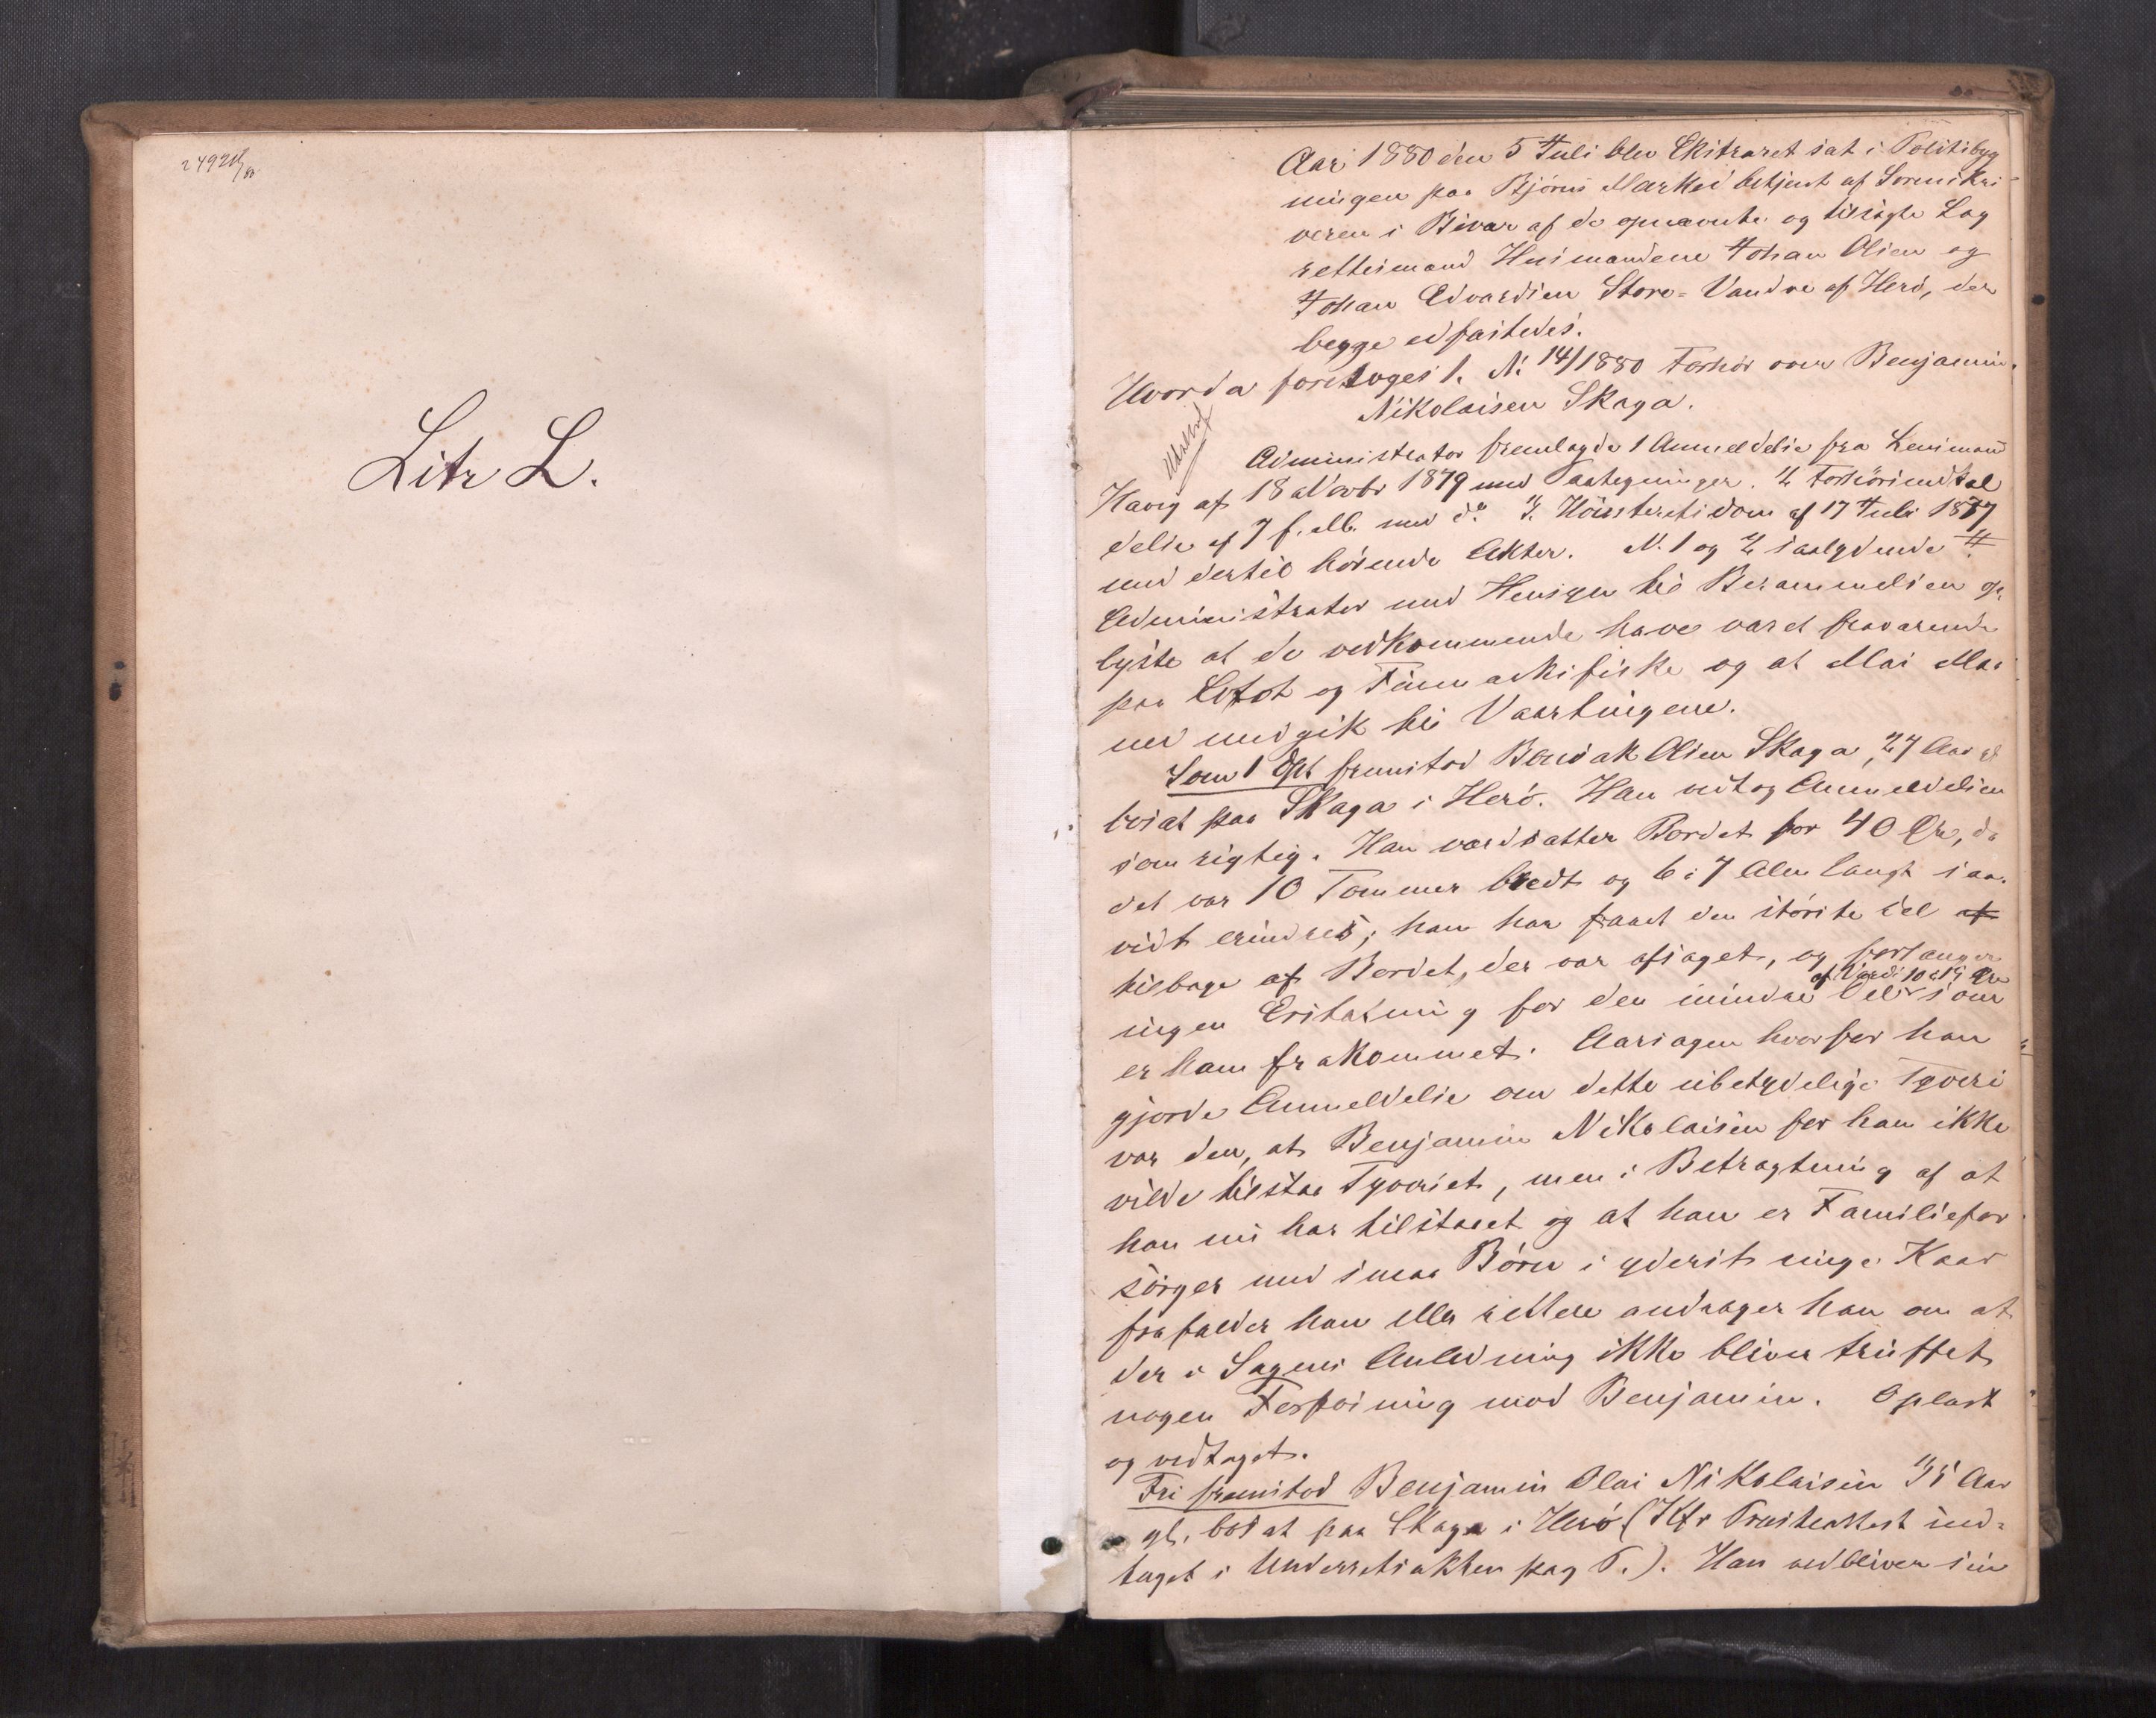 Litr L.
Aar 1880 den 5 Juli blev Extraret sat i Politibyg
ningen paa Bjørns Marked betjent af Sorenskri-
veren i Bivær af de opnævnte og tilsagte Lag
rettesmænd Husmændene Johan Olsen og
Johan Edvardsen Store-Vandve af Herø, der
begge edfæstedes.
Hvorda foretoges 1. N. 14/1880 Forhør over Benjamin
Nikolaisen Skaga.
Administrator fremlagde 1 Anmeldelse fra Lensmand
Havig af 18 Novbr 1879 med Paategninger. 2, Forhørsindkal
delse af 7 f. M. med do. 3, Høiesteretsdom af 17 Juli 1877
med dertil hørende Akter. N. 1 og 2 saalydende #.
Administrator med Hensyn til Berammelsen op
lyste at de vedkommende have været fraværende
paa Lofot og Finmarksfiske og at Mai Maa
ned medgik til Vaartingene.
Som 1 Dpt fremstod Benjak Olsen Skaga, 27 Aar gl
boсat paa Skaga i Herø. Han vedtog Anmeldelsen
som rigtig. Han værdsætter Bordet for 40 Øre, da
det var 10 Tommer bredt og 6 à 7 Alen langt saa-
vidt erindres; han har faaet den største Del af
tilbage af Bordet, der var afsaget, og forlanger
ingen Erstatning for den mindre Del af Værdi 10 à 15 Øre som
er ham frakommet. Aarsagen hvorfor han
gjorde Anmeldelse om dette ubetydelige Tyveri
var den, at Benjamin Nikolaisen for ham ikke
vilde tilstaa Tyveriet, men i Betragtning af at
han nu har tilstaaet og at han er Familiefor
sørger med smaa Børn i yderst ringe Kaar
frafalder han eller rettere andrager han om at
der i Sagens Anledning ikke bliver truffet
nogen Forføining mod Benjamin. Oplæst
og vedtaget.
Fri fremstod Benjamin Olai Nikolaisen 35 Aar
gl. bosat paa Skaga i Herø (Kfr Presteattest ind-
taget i Underretsakten pag 5.). Han vedbliver sin